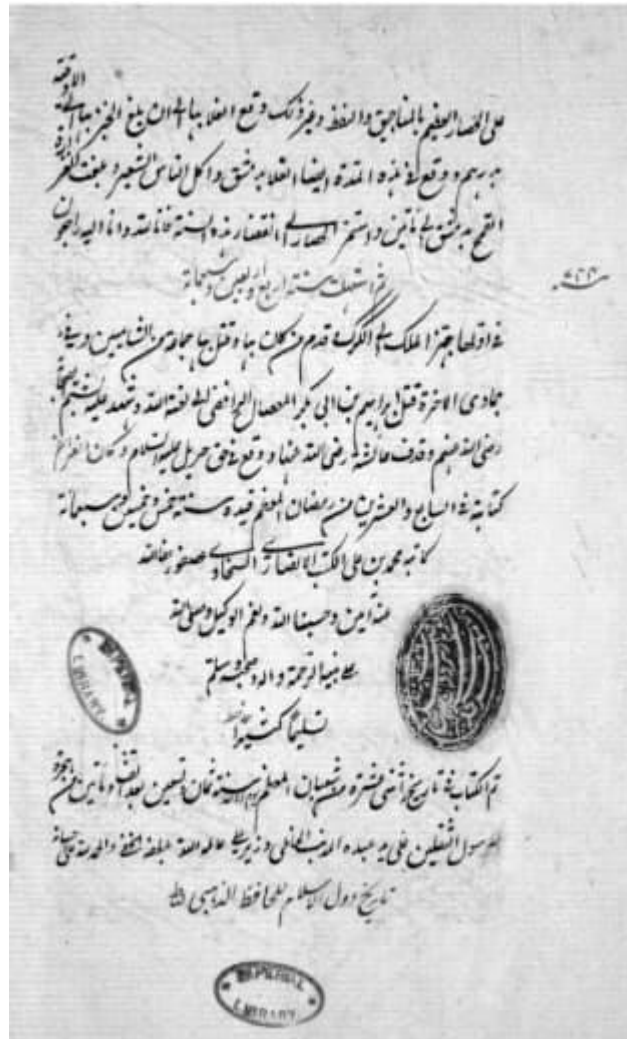 على الحصار العظيم بالمناجيق والنفط وغير ذلك ووقع الغلا بها الى ان بلغ الخبز بها الاوقية
بدرهم ووقع في هذه المدة ايضا الغلا بدمشق واكل الناس الشعير وبلغت
القمح بدمشق الى مأتين واستمر الحصار الى انقضاء هذه السنة فانا لله وانا اليه راجعون
ثم استهلت سنة اربع واربعين وسبعمائة
٧٤٤
في اولها جهز الملك الى الكرك قدم من كان بها وقتل بها جماعة من الشاميين وفي
جمادى الاخرة قتل ابراهيم بن ابى بكر الرافضى الى لعنة الله وشهد عليه
رضى الله عنهم وقذف عائشة رضى الله عنها ووقع في حق جبريل عليه السلام وكان الفراغ من
كتابة في السابع والعشرين من رمضان المعظم قدره سنة خمس وخمسين وسبعمائة
كاتبه محمد بن على الانصارى عفا الله
عنه آمين وحسبنا الله ونعم الوكيل وصلى الله
على نبيه الرحمة واله وصحبه وسلم
تسليما كثيرا
تم الكتاب في تاريخ اثنى عشرة من شعبان المعظم سنة ثمان وتسعين بعد الف ومأتين من هجرة
رسول الثقلين على يد عبده المذنب وزير على عامله الله بلطفه الخفى والحمد لله
تاريخ دول الاسلام للحافظ الذهبى
IMPERIAL LIBRARY
IMPERIAL LIBRARY